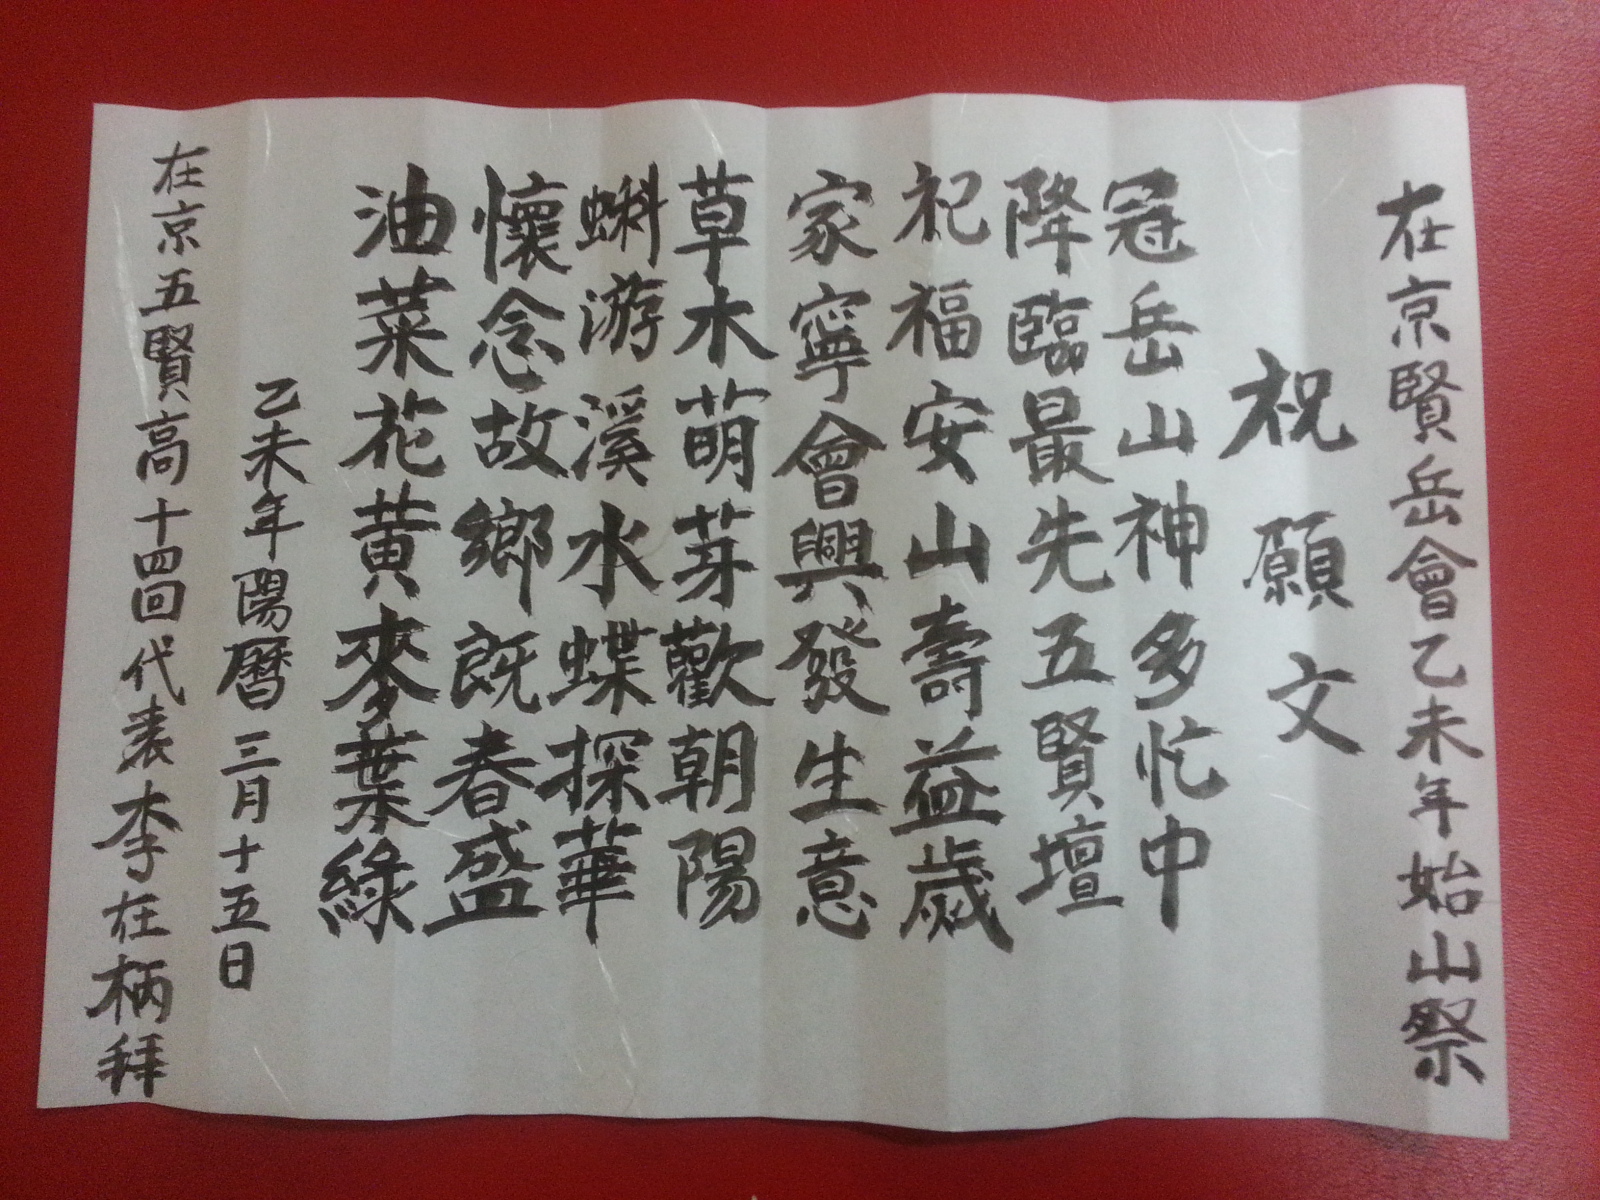 在京賢岳會乙未年始山祭
祝願文
冠岳山神多忙中
降臨最先五賢壇
祀福安山壽益歲
家寧會興發生意
草木萌芽歡朝陽
蝌游溪水蝶探華
懷念故鄉旣春盛
油菜花黃麥葉綠
乙未年陽曆三月十五日
在京五賢高十四回代表李在柄拜